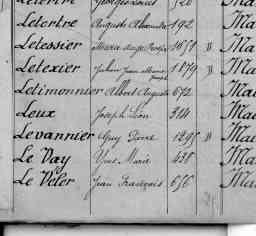 Letertre Auguste Alexandre 192 Ma
Letessier Marie 1651 " Ma
Letexier Julien Jean 1879 " Ma
Letimonnier Albert Auguste 672 Ma
Leux Joseph Léon 314 Ma
Levannier Guy Pierre 1295 " Ma
Le Vay Yves Marie 438 Ma
Le Veler Jean François 656 Ma